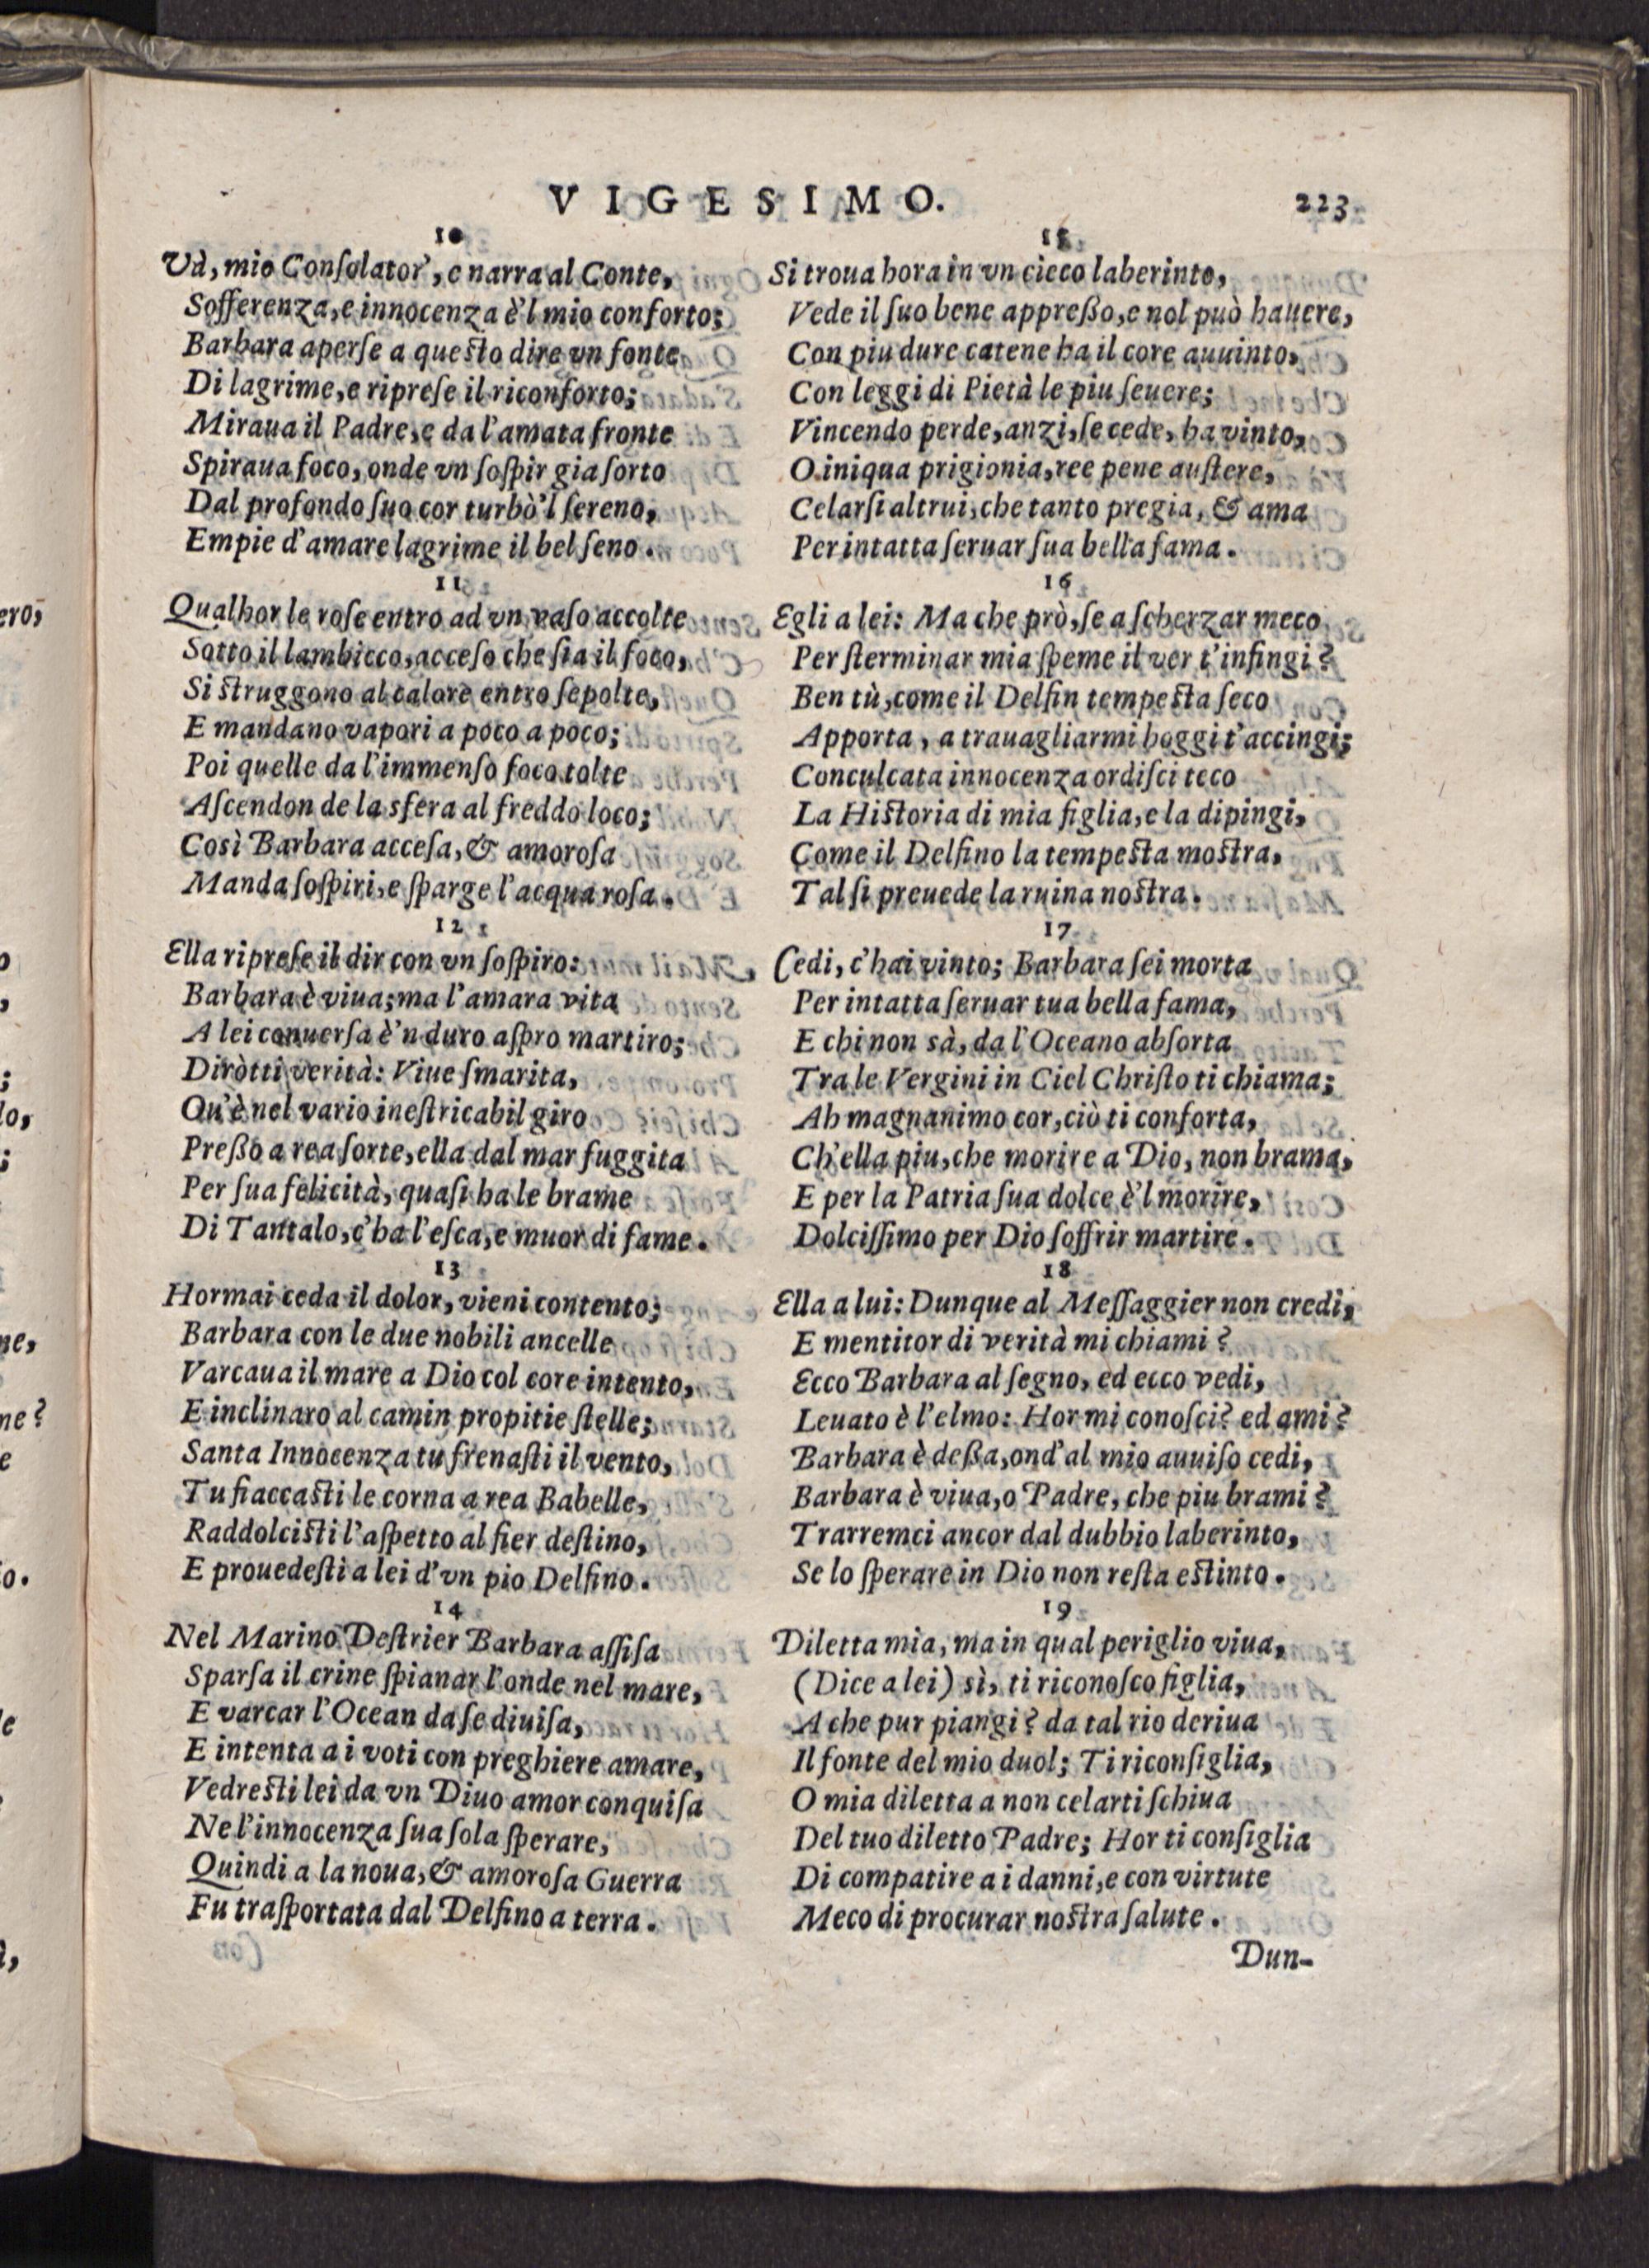 VIGESIMO.
223
10
Và, mio Conſolator, e narra al Conte,
Sofferenza, e innocenza è'l mio conforto;
Barbara aperſe a queſto dire vn fonte
Di lagrime, e ripreſe il riconforto;
Miraua il Padre, e da l'amata fronte
Spiraua foco, onde vn ſoſpir gia ſorto
Dal profondo ſuo cor turbò'l ſereno,
Empie d'amare lagrime il bel ſeno.
11
Qualhor le roſe entro ad vn vaſo accolte
Sotto il lambicco, acceſo che ſia il foco,
Si ſtruggono al calore entro ſepolte,
E mandano vapori a poco a poco;
Poi quelle da l'immenſo foco tolte
Aſcendon de la sfera al freddo loco;
Così Barbara acceſa, & amoroſa
Manda ſoſpiri, e ſparge l'acqua roſa.
12
Ella ripreſe il dir con vn ſoſpiro:
Barbara è viua; ma l'amara vita
A lei conuerſa è'n duro aſpro martiro;
Diròtti verità: Viue ſmarita,
Ou'è nel vario ineſtricabil giro
Preßo a rea ſorte, ella dal mar fuggita
Per ſua felicità, quaſi ha le brame
Di Tantalo, c'ha l'eſca, e muor di fame.
13
Hormai ceda il dolor, vieni contento;
Barbara con le due nobili ancelle
Varcaua il mare a Dio col core intento,
E inclinaro al camin propitie ſtelle;
Santa Innocenza tu frenaſti il vento,
Tu fiaccaſti le corna a rea Babelle,
Raddolciſti l'aſpetto al fier deſtino,
E prouedeſti a lei d'vn pio Delfino.
14
Nel Marino Deſtrier Barbara aſſiſa
Sparſa il crine ſpianar l'onde nel mare,
E varcar l'Ocean da ſe diuiſa,
E intenta a i voti con preghiere amare,
Vedreſti lei da vn Diuo amor conquiſa
Ne l'innocenza ſua ſola ſperare,
Quindi a la noua, & amoroſa Guerra
Fu traſportata dal Delfino a terra.
15
Si troua hora in vn cieco laberinto,
Vede il ſuo bene appreßo, e nol può hauere,
Con piu dure catene ha il core auuinto,
Con leggi di Pietà le piu ſeuere;
Vincendo perde, anzi, ſe cede, ha vinto,
O iniqua prigionia, ree pene auſtere,
Celarſi altrui, che tanto pregia, & ama
Per intatta ſeruar ſua bella fama.
16
Egli a lei: Ma che prò, ſe a ſcherzar meco
Per ſterminar mia ſpeme il ver t'infingi?
Ben tù, come il Delfin tempeſta ſeco
Apporta, a trauagliarmi hoggi t'accingi;
Conculcata innocenza ordiſci teco
La Hiſtoria di mia figlia, e la dipingi,
Come il Delfino la tempeſta moſtra,
Tal ſi preuede la ruina noſtra.
17
Cedi, c'hai vinto; Barbara ſei morta
Per intatta ſeruar tua bella fama,
E chi non sà, da l'Oceano abſorta
Tra le Vergini in Ciel Chriſto ti chiama;
Ah magnanimo cor, ciò ti conforta,
Ch'ella piu, che morire a Dio, non brama,
E per la Patria ſua dolce è'l morire,
Dolciſſimo per Dio ſoffrir martire.
18
Ella a lui: Dunque al Meſſaggier non credi,
E mentitor di verità mi chiami?
Ecco Barbara al ſegno, ed ecco vedi,
Leuato è l'elmo: Hor mi conoſci? ed ami?
Barbara è deßa, ond'al mio auuiſo cedi,
Barbara è viua, o Padre, che piu brami?
Trarremci ancor dal dubbio laberinto,
Se lo ſperare in Dio non reſta eſtinto.
19
Diletta mia, ma in qual periglio viua,
(Dice a lei) sì, ti riconoſco figlia,
A che pur piangi? da tal rio deriua
Il fonte del mio duol; Ti riconſiglia,
O mia diletta a non celarti ſchiua
Del tuo diletto Padre; Hor ti conſiglia
Di compatire a i danni, e con virtute
Meco di procurar noſtra ſalute.
Dun-